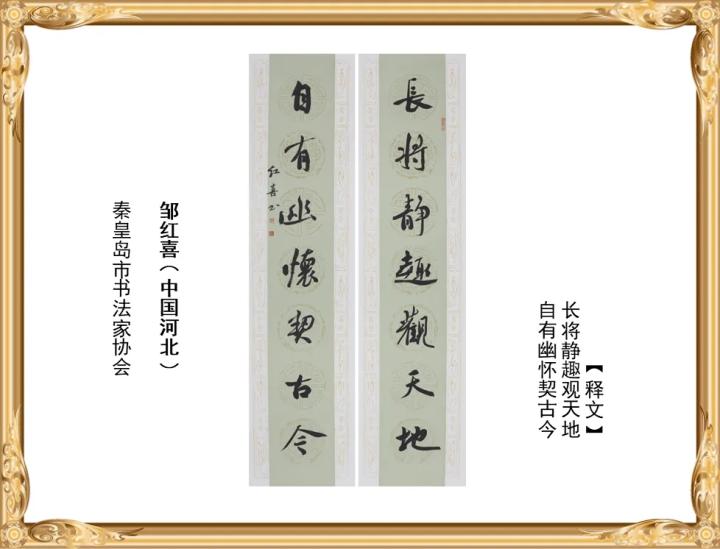 長将静趣觀天地
自有幽懷契古今
红喜书
【释文】
长将静趣观天地
自有幽怀契古今
邹红喜（中国河北）
秦皇岛市书法家协会